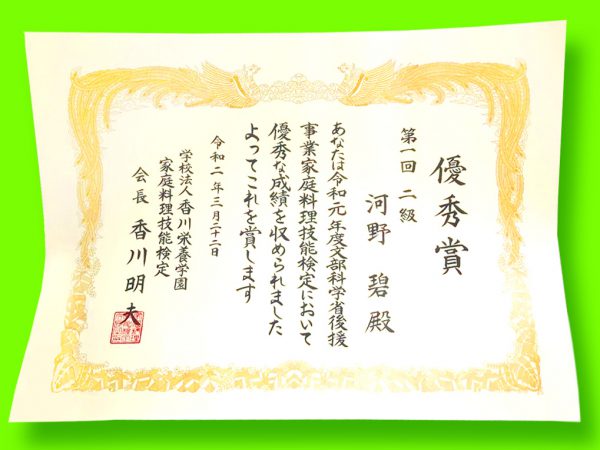 優秀賞
第一回 二級
河野 碧 殿
あなたは令和元年度文部科学省後援
事業家庭料理技能検定において
優秀な成績を収められました
よってこれを賞します
令和二年三月二十二日
学校法人 香川栄養学園
家庭料理技能検定
会長 香川明夫